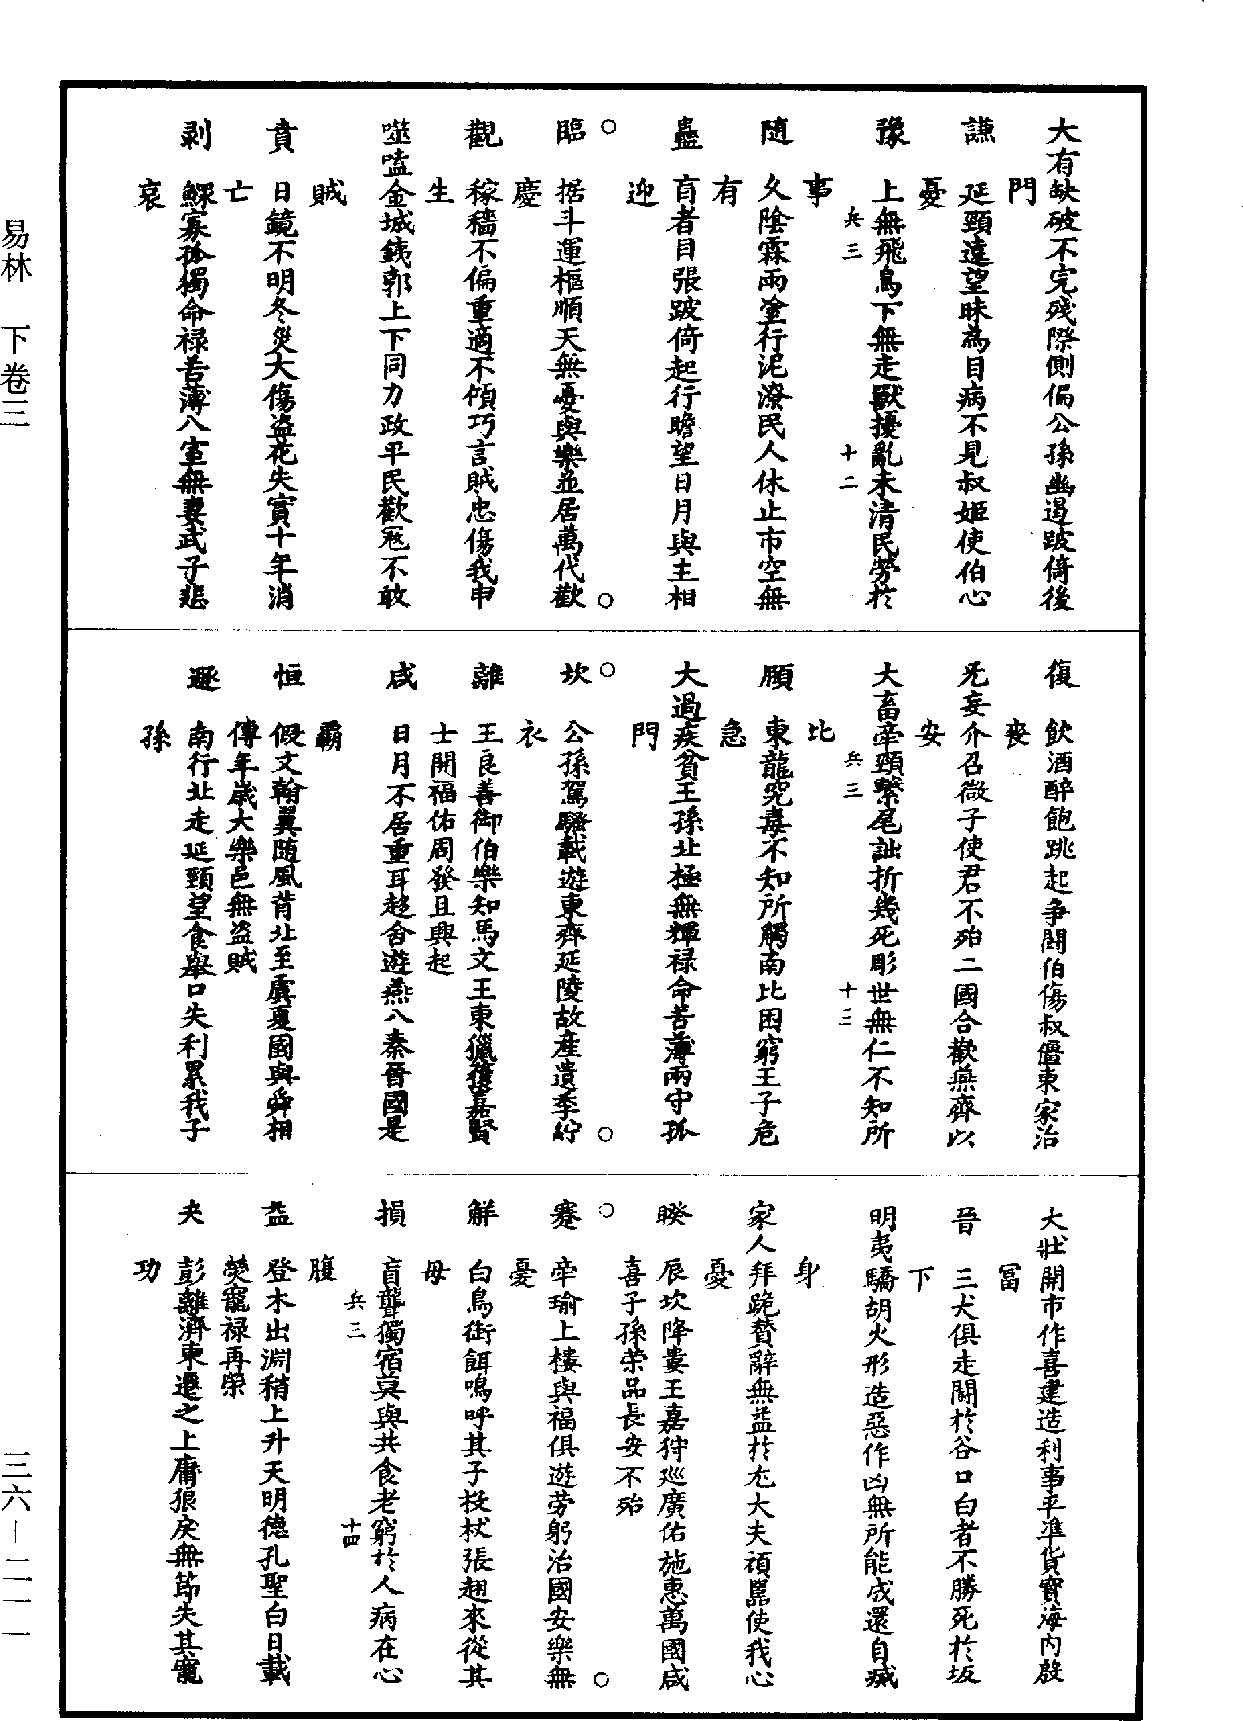 大有缺破不完殘際側偏公孫幽遏跛倚後
門
謙　延頸遠望昧為目病不見叔姬使伯心
憂
豫　上無飛鳥下無走獸擾亂未清民勞於
事
兵三　十二
隨　久陰霖雨塗行泥潦民人休止市空無
有
蠱　盲者目張跛倚起行瞻望日月與主相
迎
臨　据斗運樞順天無憂與樂並居萬代歡
慶
觀　稼穡不偏重適不傾巧言賊忠傷我申
生
噬嗑金城鐵郭上下同力政平民歡寇不敢
賊
賁　日鏡不明冬災大傷盜花失實十年消
亡
剥　鰥寡孤獨命祿苦薄入室無妻武子悲
哀
復　飲酒醉飽跳起争鬭伯傷叔僵東家治
喪
无妄介召微子使君不殆二國合歡燕齊以
安
大畜牽頸繫尾詘折幾死彫世無仁不知所
比
兵三　十三
頤　東龍宄毒不知所觸南北困窮王子危
急
大過疾貧王孫北極無輝祿命苦薄兩守孤
門
坎　公孫駕驪載遊東齊延陵故產遺季紵
衣
離　王良善御伯樂知馬文王東獵獲嘉賢
士開福佑周發且興起
咸　日月不居重耳趍舍遊燕入秦晉國是
霸
恒　假文翰翼随風背北至虞夏國與舜相
傅年歲大樂邑無盜賊
遯　南行北走延頸望食舉口失利累我子
孫
大壯開市作喜建造利事平準貨寶海内殷
富
晉　三犬俱走鬭於谷口白者不勝死於坂
下
明夷驕胡火形造惡作凶無所能成還自滅
身
家人拜跪贊辭無益於尤大夫頑嚚使我心
憂
睽　辰次降婁王嘉狩巡廣佑施惠萬國咸
喜子孫荣品長安不殆
蹇　牽瑜上樓與福俱遊劳躬治國安樂無
憂
解　白鳥銜餌鳴呼其子投杖張翅來從其
母
損　盲聾獨宿莫與共食老窮於人病在心
腹
兵三　十四
益　登木出淵稍上升天明德孔聖白日載
熒寵祿再榮
夬　彭離濟東遷之上庸狼戾無節失其寵
功
易林　下卷三
三六—二一一